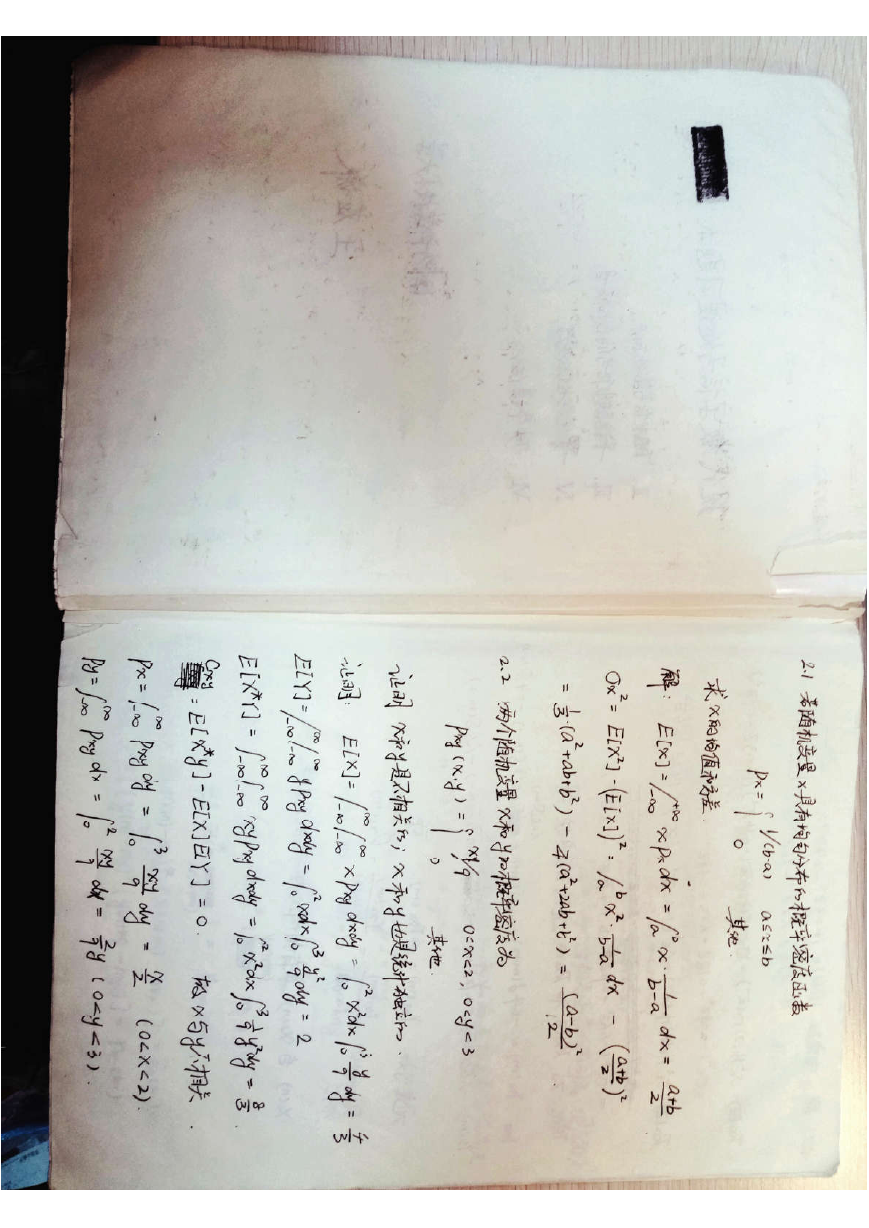 2.1 若随机变量x具有均匀分布的概率密度函数
Px = { 1/(b-a)   a≤x≤b
0   其他.
求x的均值和方差.
解: E[x] = ∫_{-∞}^{+∞} x Px dx = ∫_a^b x · 1/(b-a) dx = (a+b)/2
σx² = E[x²] - (E[x])² = ∫_a^b x² · 1/(b-a) dx - ((a+b)/2)²
= 1/3·(a²+ab+b²) - 1/4(a²+2ab+b²) = (a-b)²/12.
2.2 两个随机变量x和y的概率密度为
Pxy (x,y) = { xy/9   0<x<2, 0<y<3
0   其他.
证明 x和y是不相关的; x和y也是统计独立的.
证明: E[X] = ∫_{-∞}^{∞}∫_{-∞}^{∞} x Pxy dxdy = ∫_0^2 x²dx ∫_0^3 y/9 dy = 4/3
E[Y] = ∫_{-∞}^{∞}∫_{-∞}^{∞} y Pxy dxdy = ∫_0^2 xdx ∫_0^3 y²/9 dy = 2
E[X*Y] = ∫_{-∞}^{∞}∫_{-∞}^{∞} xy Pxy dxdy = ∫_0^2 x²dx ∫_0^3 1/9 y²dy = 8/3.
Cxy = E[X*y] - E[X]E[Y] = 0. 故 x与y不相关.
Px = ∫_{-∞}^{∞} Pxy dy = ∫_0^3 xy/9 dy = x/2 (0<x<2).
Py = ∫_{-∞}^{∞} Pxy dx = ∫_0^2 xy/9 dx = 2/9 y (0<y<3).